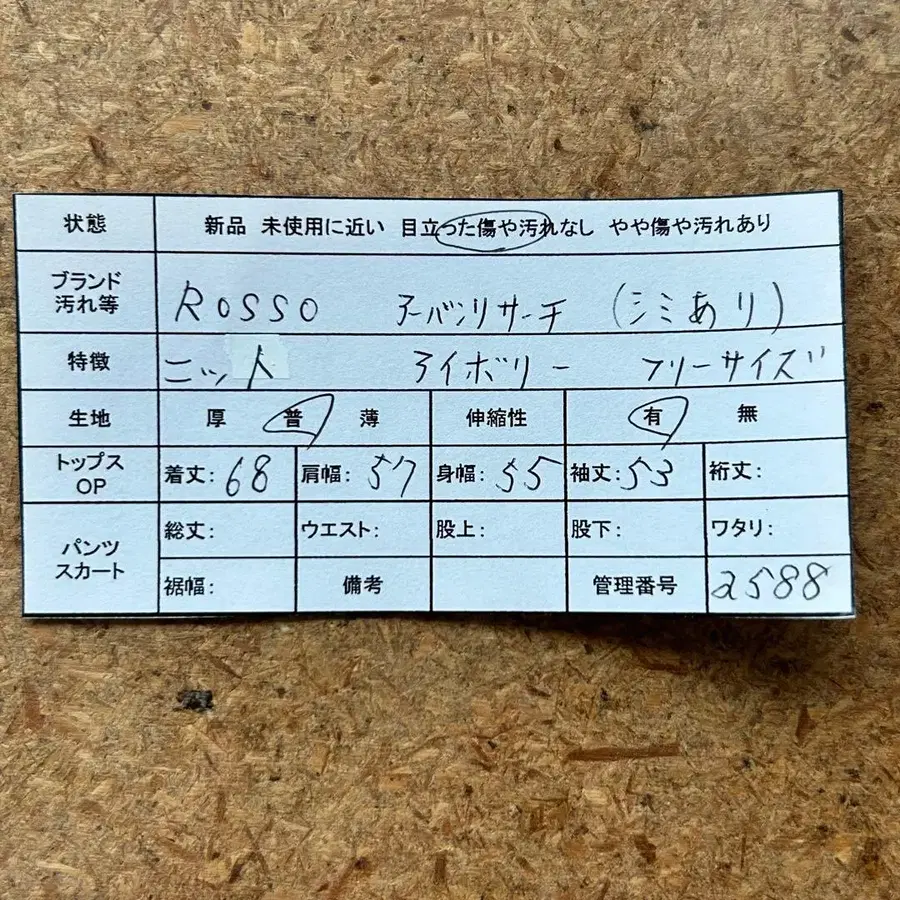 状態 新品 未使用に近い 目立った傷や汚れなし やや傷や汚れあり
ブランド
汚れ等 ROSSO アーバンリサーチ (シミあり)
特徴 ニット アイボリー フリーサイズ
生地 厚 普 薄 伸縮性 有 無
トップス
OP 着丈: 68 肩幅: 57 身幅: 55 袖丈: 53 裄丈:
パンツ
スカート 総丈: ウエスト: 股上: 股下: ワタリ:
裾幅: 備考 管理番号 2588